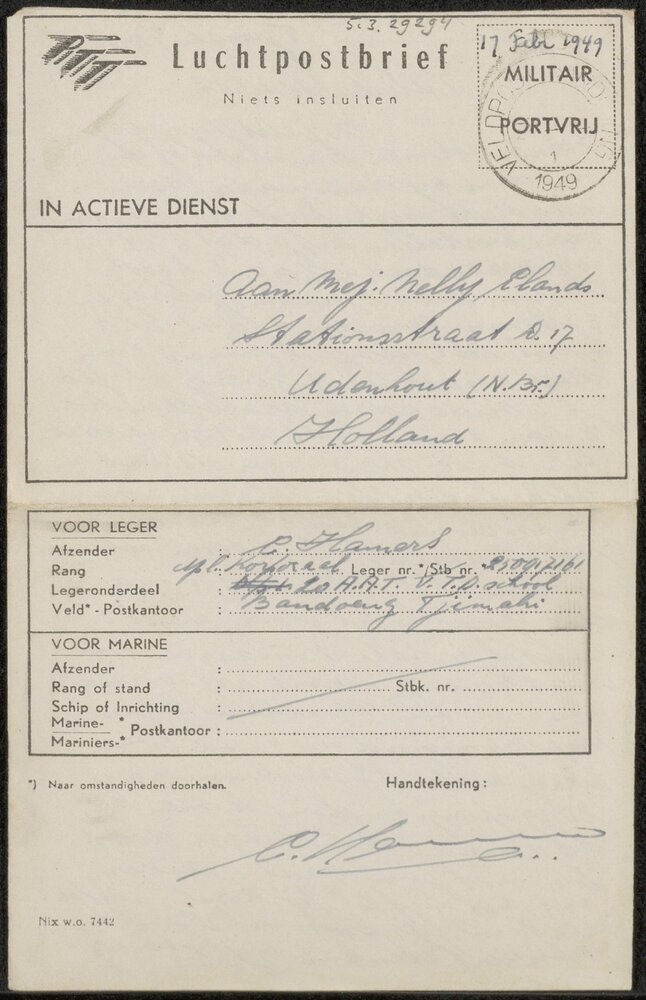 5.3. 29294
PTT
Luchtpostbrief
Niets insluiten
17 Febr 1949
MILITAIR
PORTVRIJ
VELDPO
1
1949
IN ACTIEVE DIENST
Aan Mej. Nelly Elands
Stationsstraat D. 17
Udenhout (N.Br.)
Holland
VOOR LEGER
Afzender : C. Hamers
Rang : Korporaal Leger nr.* Stb nr.
Legeronderdeel : A.A.T. V.T.O. school
Veld* - Postkantoor : Bandoeng Tjimahi
VOOR MARINE
Afzender :
Rang of stand : Stbk. nr.
Schip of Inrichting :
Marine- *
Mariniers-* Postkantoor :
*) Naar omstandigheden doorhalen.
Handtekening:
C. Hamers
Nix w.o. 7442